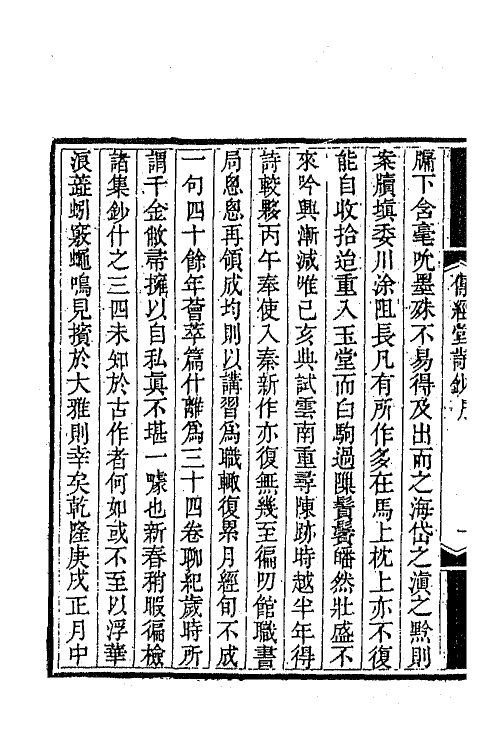 牖下含毫吮墨殊不易得及出而之海岱之滇之黔則
案牘填委川涂阻長凡有所作多在馬上枕上亦不復
能自收拾迨重入玉堂而白駒過隙鬢鬢皤然壯盛不
來吟興漸減唯己亥典試雲南重尋陳跡時越半年得
詩較夥丙午奉使入秦新作亦復無幾至徧叨館職書
局悤悤再領成均則以講習爲職輙復累月經旬不成
一句四十餘年薈萃篇什離爲三十四卷聊紀歲時所
謂千金敝帚擁以自私眞不堪一噱也新春稍暇徧檢
諸集鈔什之三四未知於古作者何如或不至以浮華
浪蘂蚓竅蠅鳴見擯於大雅則幸矣乾隆庚戌正月中
傳經堂詩鈔序
一